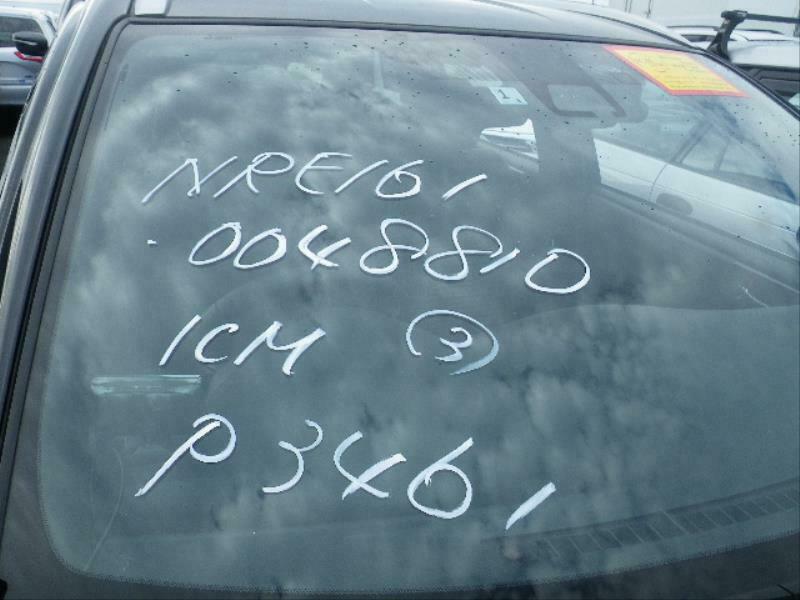 1
NRE161
-0048810
ICM ③
P3461